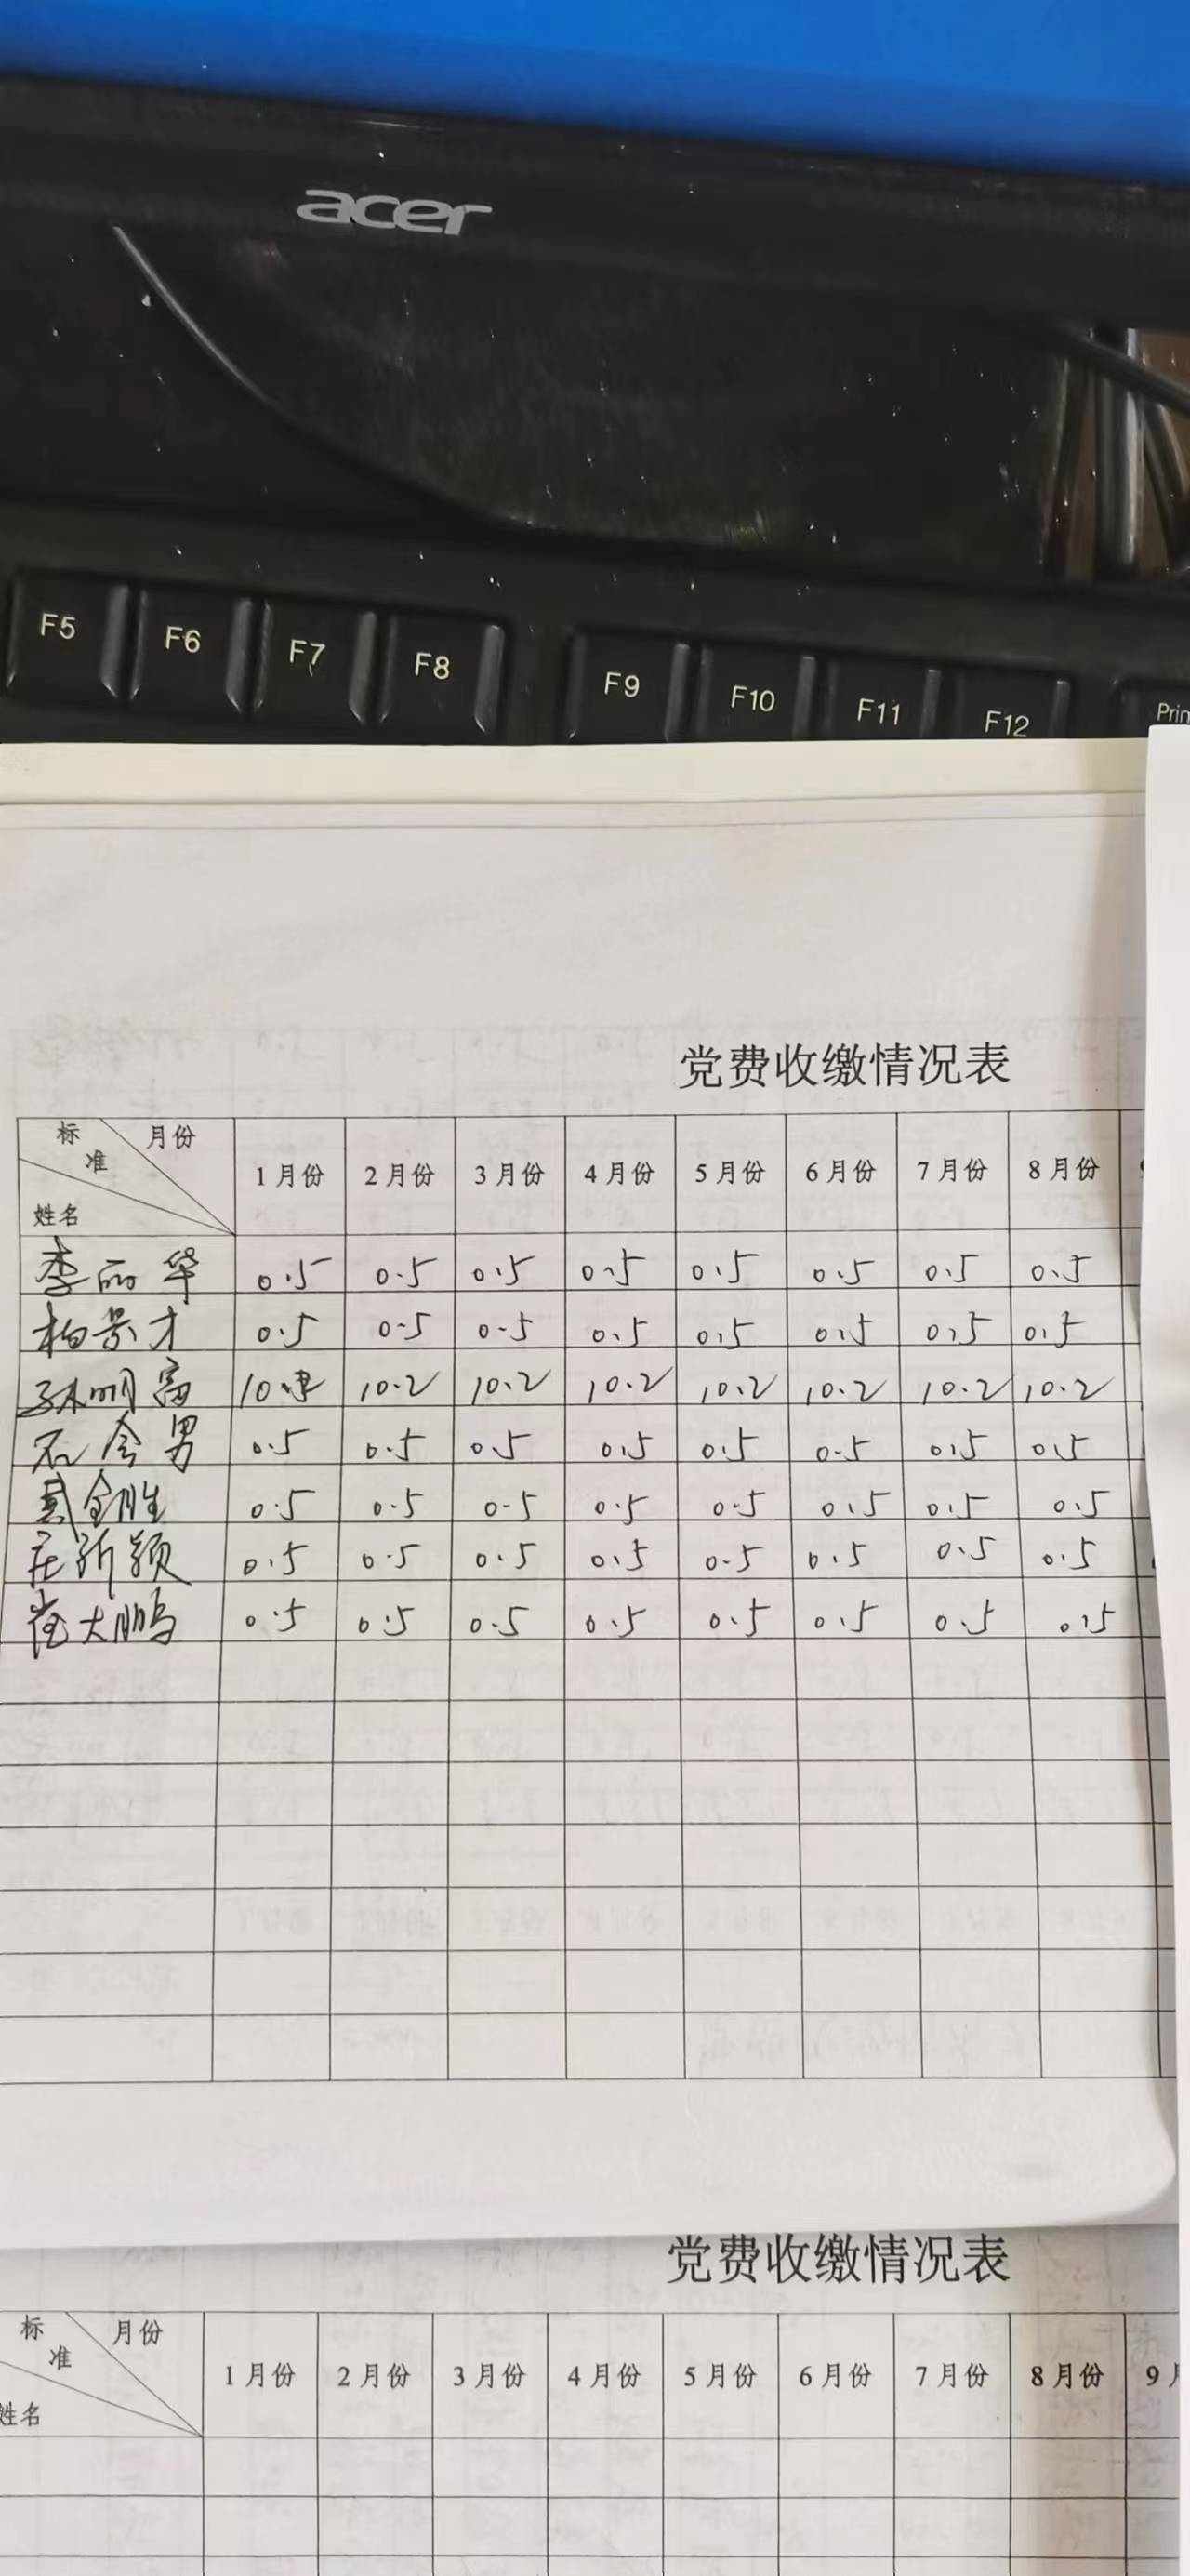 acer
F5 F6 F7 F8 F9 F10 F11 F12 Prin
党费收缴情况表
标准 月份 姓名 1月份 2月份 3月份 4月份 5月份 6月份 7月份 8月份
李丽华 0.5 0.5 0.5 0.5 0.5 0.5 0.5 0.5
柏景才 0.5 0.5 0.5 0.5 0.5 0.5 0.5 0.5
孙明富 10.2 10.2 10.2 10.2 10.2 10.2 10.2
石会男 0.5 0.5 0.5 0.5 0.5 0.5 0.5 0.5
0.5 0.5 0.5 0.5 0.5 0.5 0.5 0.5
0.5 0.5 0.5 0.5 0.5 0.5 0.5 0.5
崔大鹏 0.5 0.5 0.5 0.5 0.5 0.5 0.5 0.5
党费收缴情况表
标准 月份 姓名 1月份 2月份 3月份 4月份 5月份 6月份 7月份 8月份 9月